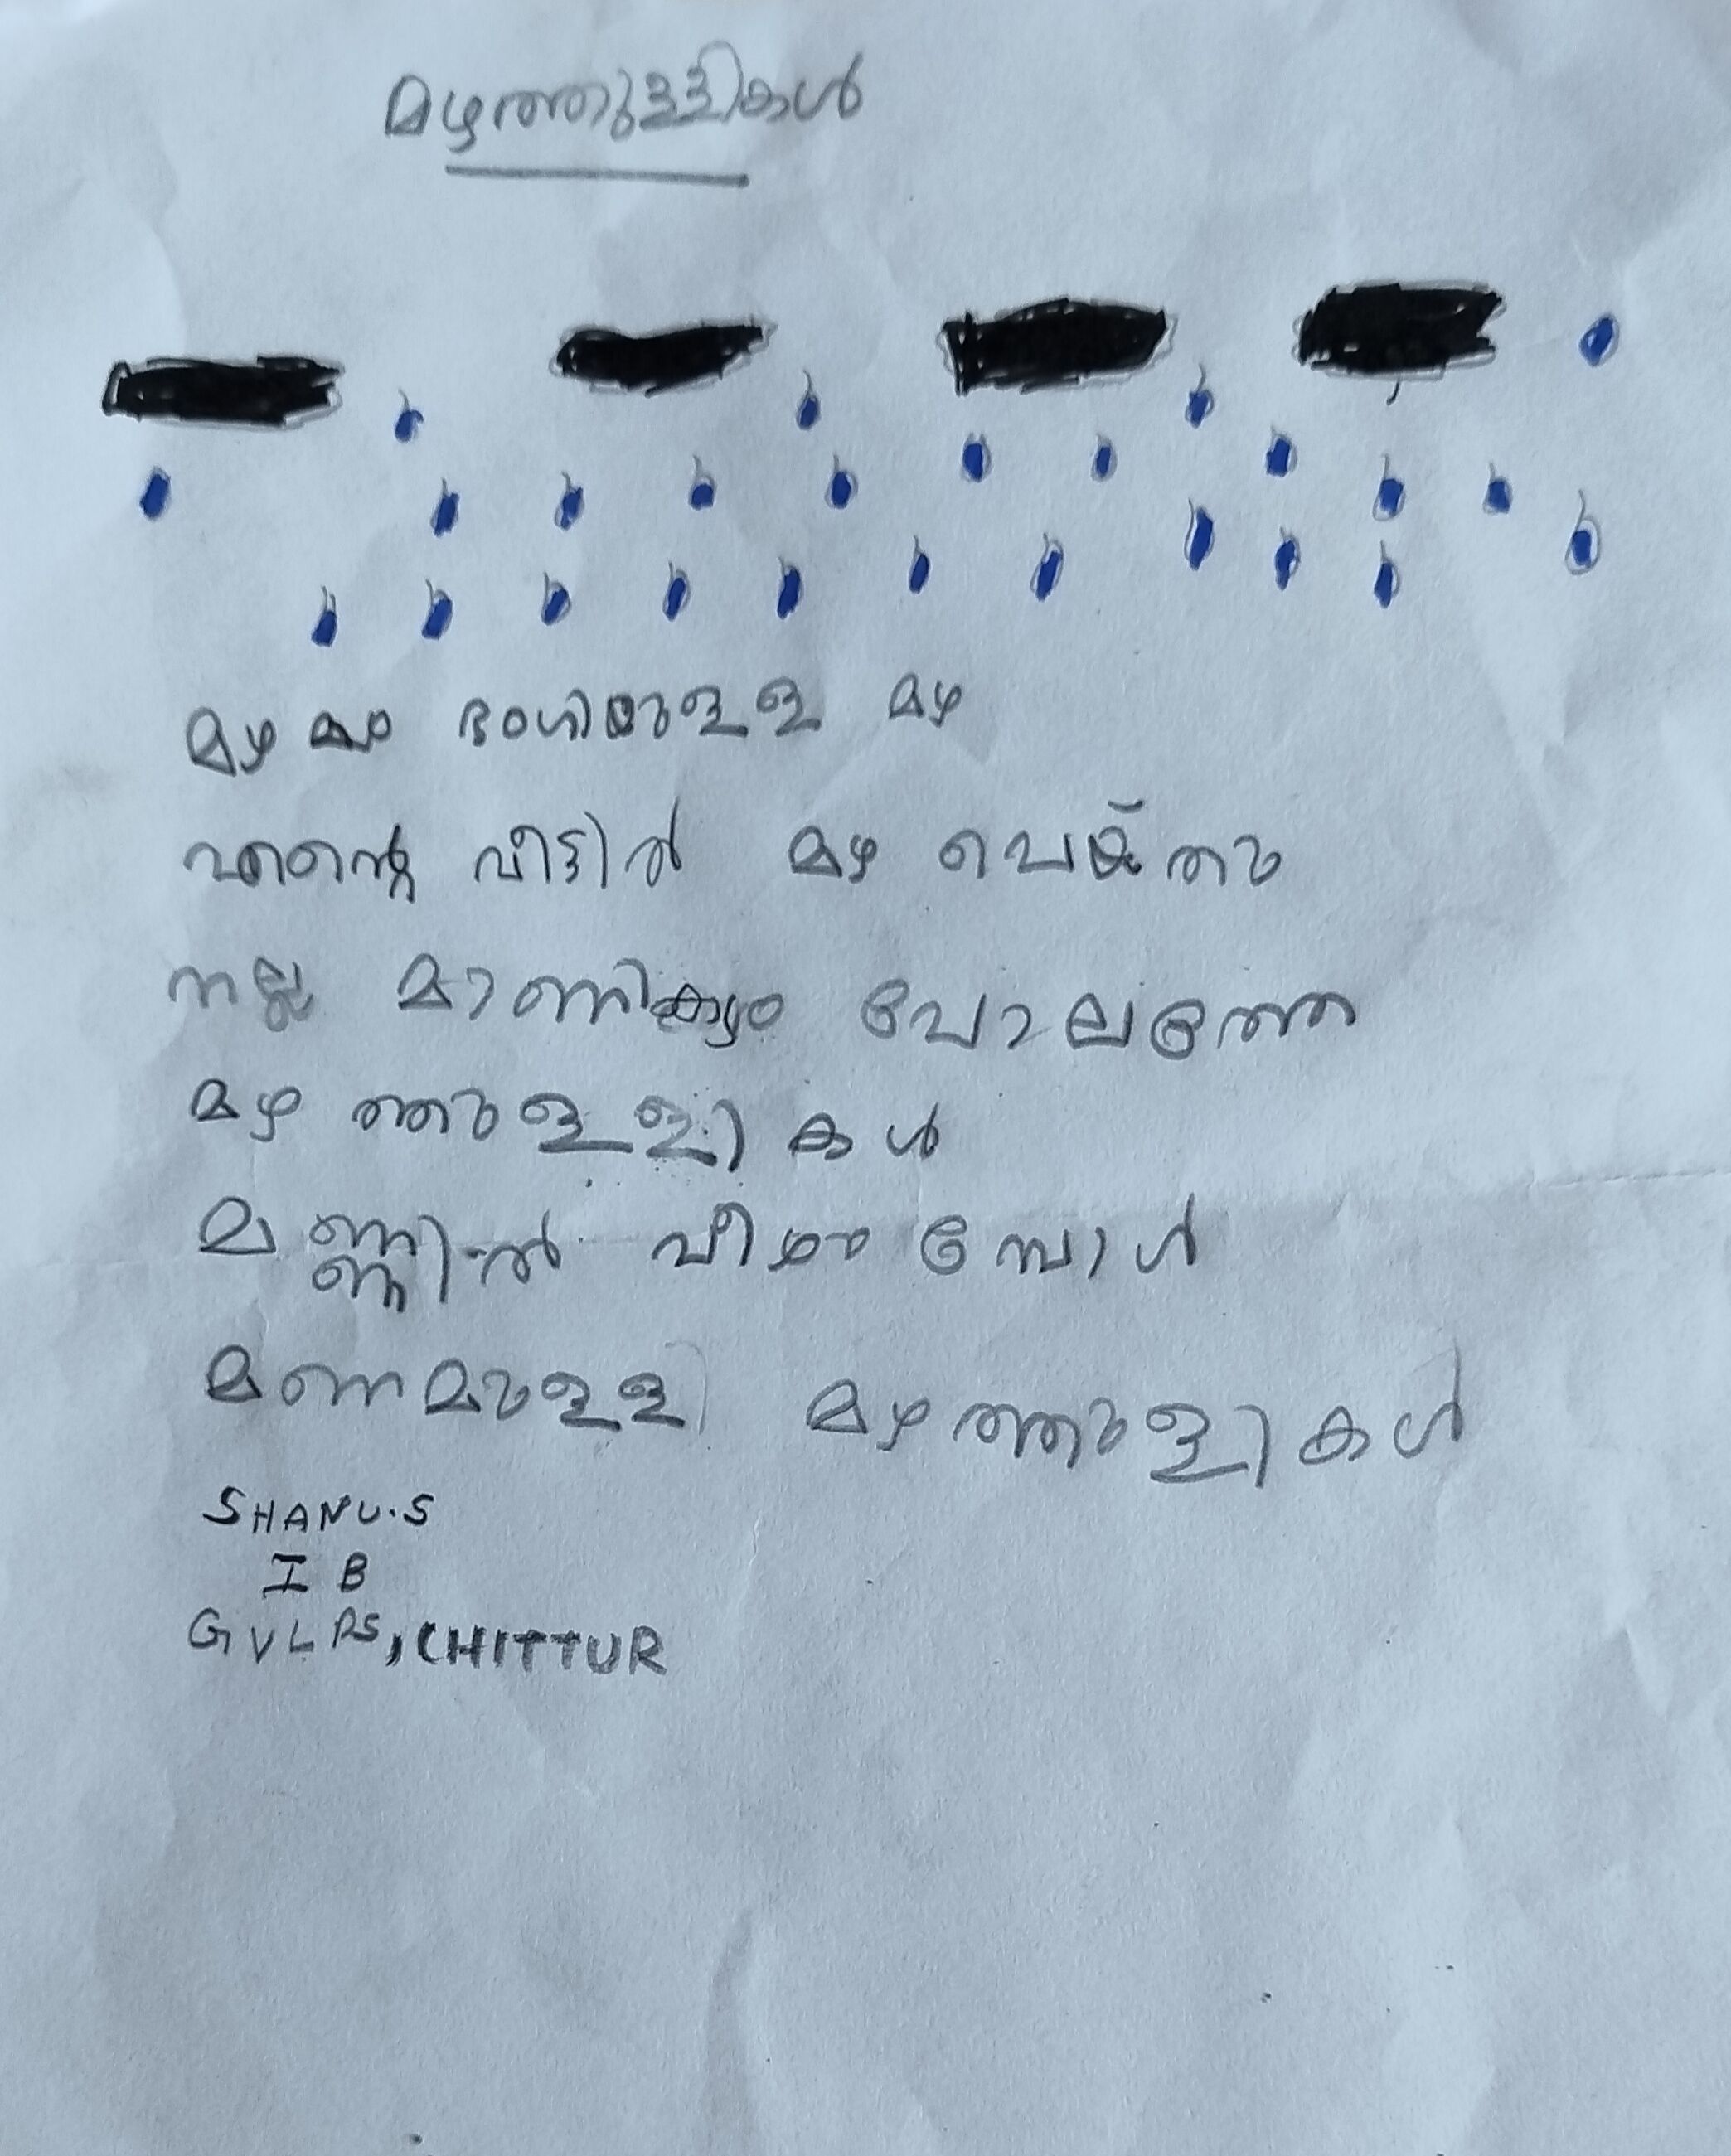 മഴത്തുള്ളികൾ
മഴ മഴ ഭംഗിയുള്ള മഴ
എന്റെ വീട്ടിൽ മഴ പെയ്തു
നല്ല മാണിക്യം പോലത്തെ
മഴ ത്തുള്ളികൾ
മണ്ണിൽ വീഴുമ്പോൾ
മണമുള്ളി മഴത്തുളികൾ
SHANU.S
I B
GVLPS, CHITTUR